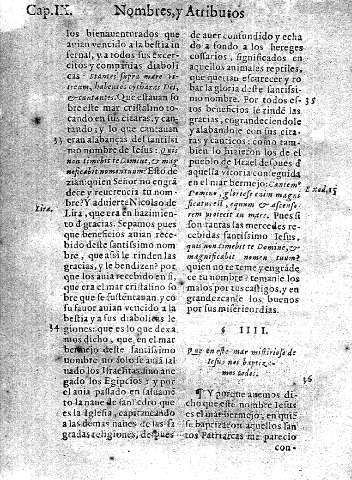 Cap.IX. Nombres, y Atributos
los bienauenturados que
auian vencido a la bestia in
fernal, y a todos sus exer-
citos y compañias diaboli
cas: stantes supra mare vi
treum, habentes cytharas Dei,
& cantantes. Que estauan so
bre este mar cristalino to-
cando en sus citaras, y can-
tando; y lo que cantauan
33
eran alabanças del santissi
mo nombre de Iesus: Quis
non timebit te Domine, & mag
nificabit nomen tuum? Esto de
zian: quien Señor no engrã
dece y reuerencia tu nom-
bre? Y aduierte Nicolao de
Lira.
Lira, que era en hazimiento
d gracias. Sepamos pues
que beneficios auian rece-
bido deste santissimo nom-
bre, que assi le rinden las
gracias, y le bendizen? por
que los auia recebido en si,
que era el mar cristalino so
bre que se sustentauan. y co
su fauor auian vencido a la
bestia y a sus diabolicas le
34
giones: que es lo que dexa
mos dicho, que, en el mar
bermejo deste santissimo
nombre no solo se auiã sal
uado los Israelitas sino ane
gado los Egipcios: y por
el auia passado en saluamẽ
to la naue de san Pedro que
es la Iglesia, capitaneando
a las demas naues de las sa
gradas religiones, despues
de auer confundido y echa
do a fondo a los hereges
cossarios, significados en
aquellos animales reptiles,
que querian escurecer y ro
bar la gloria deste santissi-
mo nombre. Por todos es-
35
tos beneficios le rindẽ las
gracias, cograndeciendole
y alabandole con sus cita
ras y canticos: como tam-
bien lo hizieron los de el
pueblo de Israel despues d
aquella vitoria conseguida
en el mar bermejo: Cantem9
Exod.15
Domino, gloriose enim mag-
nificatus est, equum & ascenso-
rem proiecit in mare. Pues si
son tantas las mercedes re-
cebidas santissimo Iesus,
quis non timebit te Domine, &
magnificabit nomen tuum?
quien no te teme y engrãde
ce tu nombre? temanle los
malos por tus castigos, y en
grandezcanle los buenos
por sus misericordias.
§ IIII.
Que en este mar misterioso de
Iesus nos baptiza-
mos todos.
36
¶ Y porque auemos di-
cho que este nombre Iesus
es el mar bermejo, en quiẽ
se baptizaron aquellos san
tos Patriarcas me parecio
con-